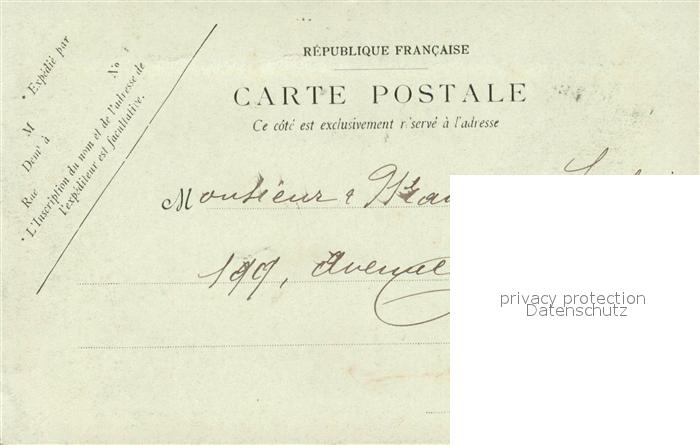 RÉPUBLIQUE FRANÇAISE
CARTE POSTALE
Ce côté est exclusivement réservé à l'adresse
* Expédié par
M No
Demt à
Rue
* L'Inscription du nom et de l'adresse de
l'expéditeur est facultative.
Monsieur
199, Avenue
privacy protection
Datenschutz